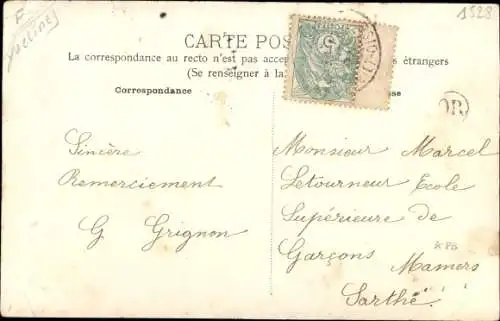 F
Yvelines
1528
CARTE POS
La correspondance au recto n'est pas accep s étrangers
(Se renseigner à la
Correspondance sse
5
OR
Sincère
Remerciement
G Grignon
Monsieur Marcel
Letourneur Ecole
Supérieure de
Garçons Mamers
Sarthe